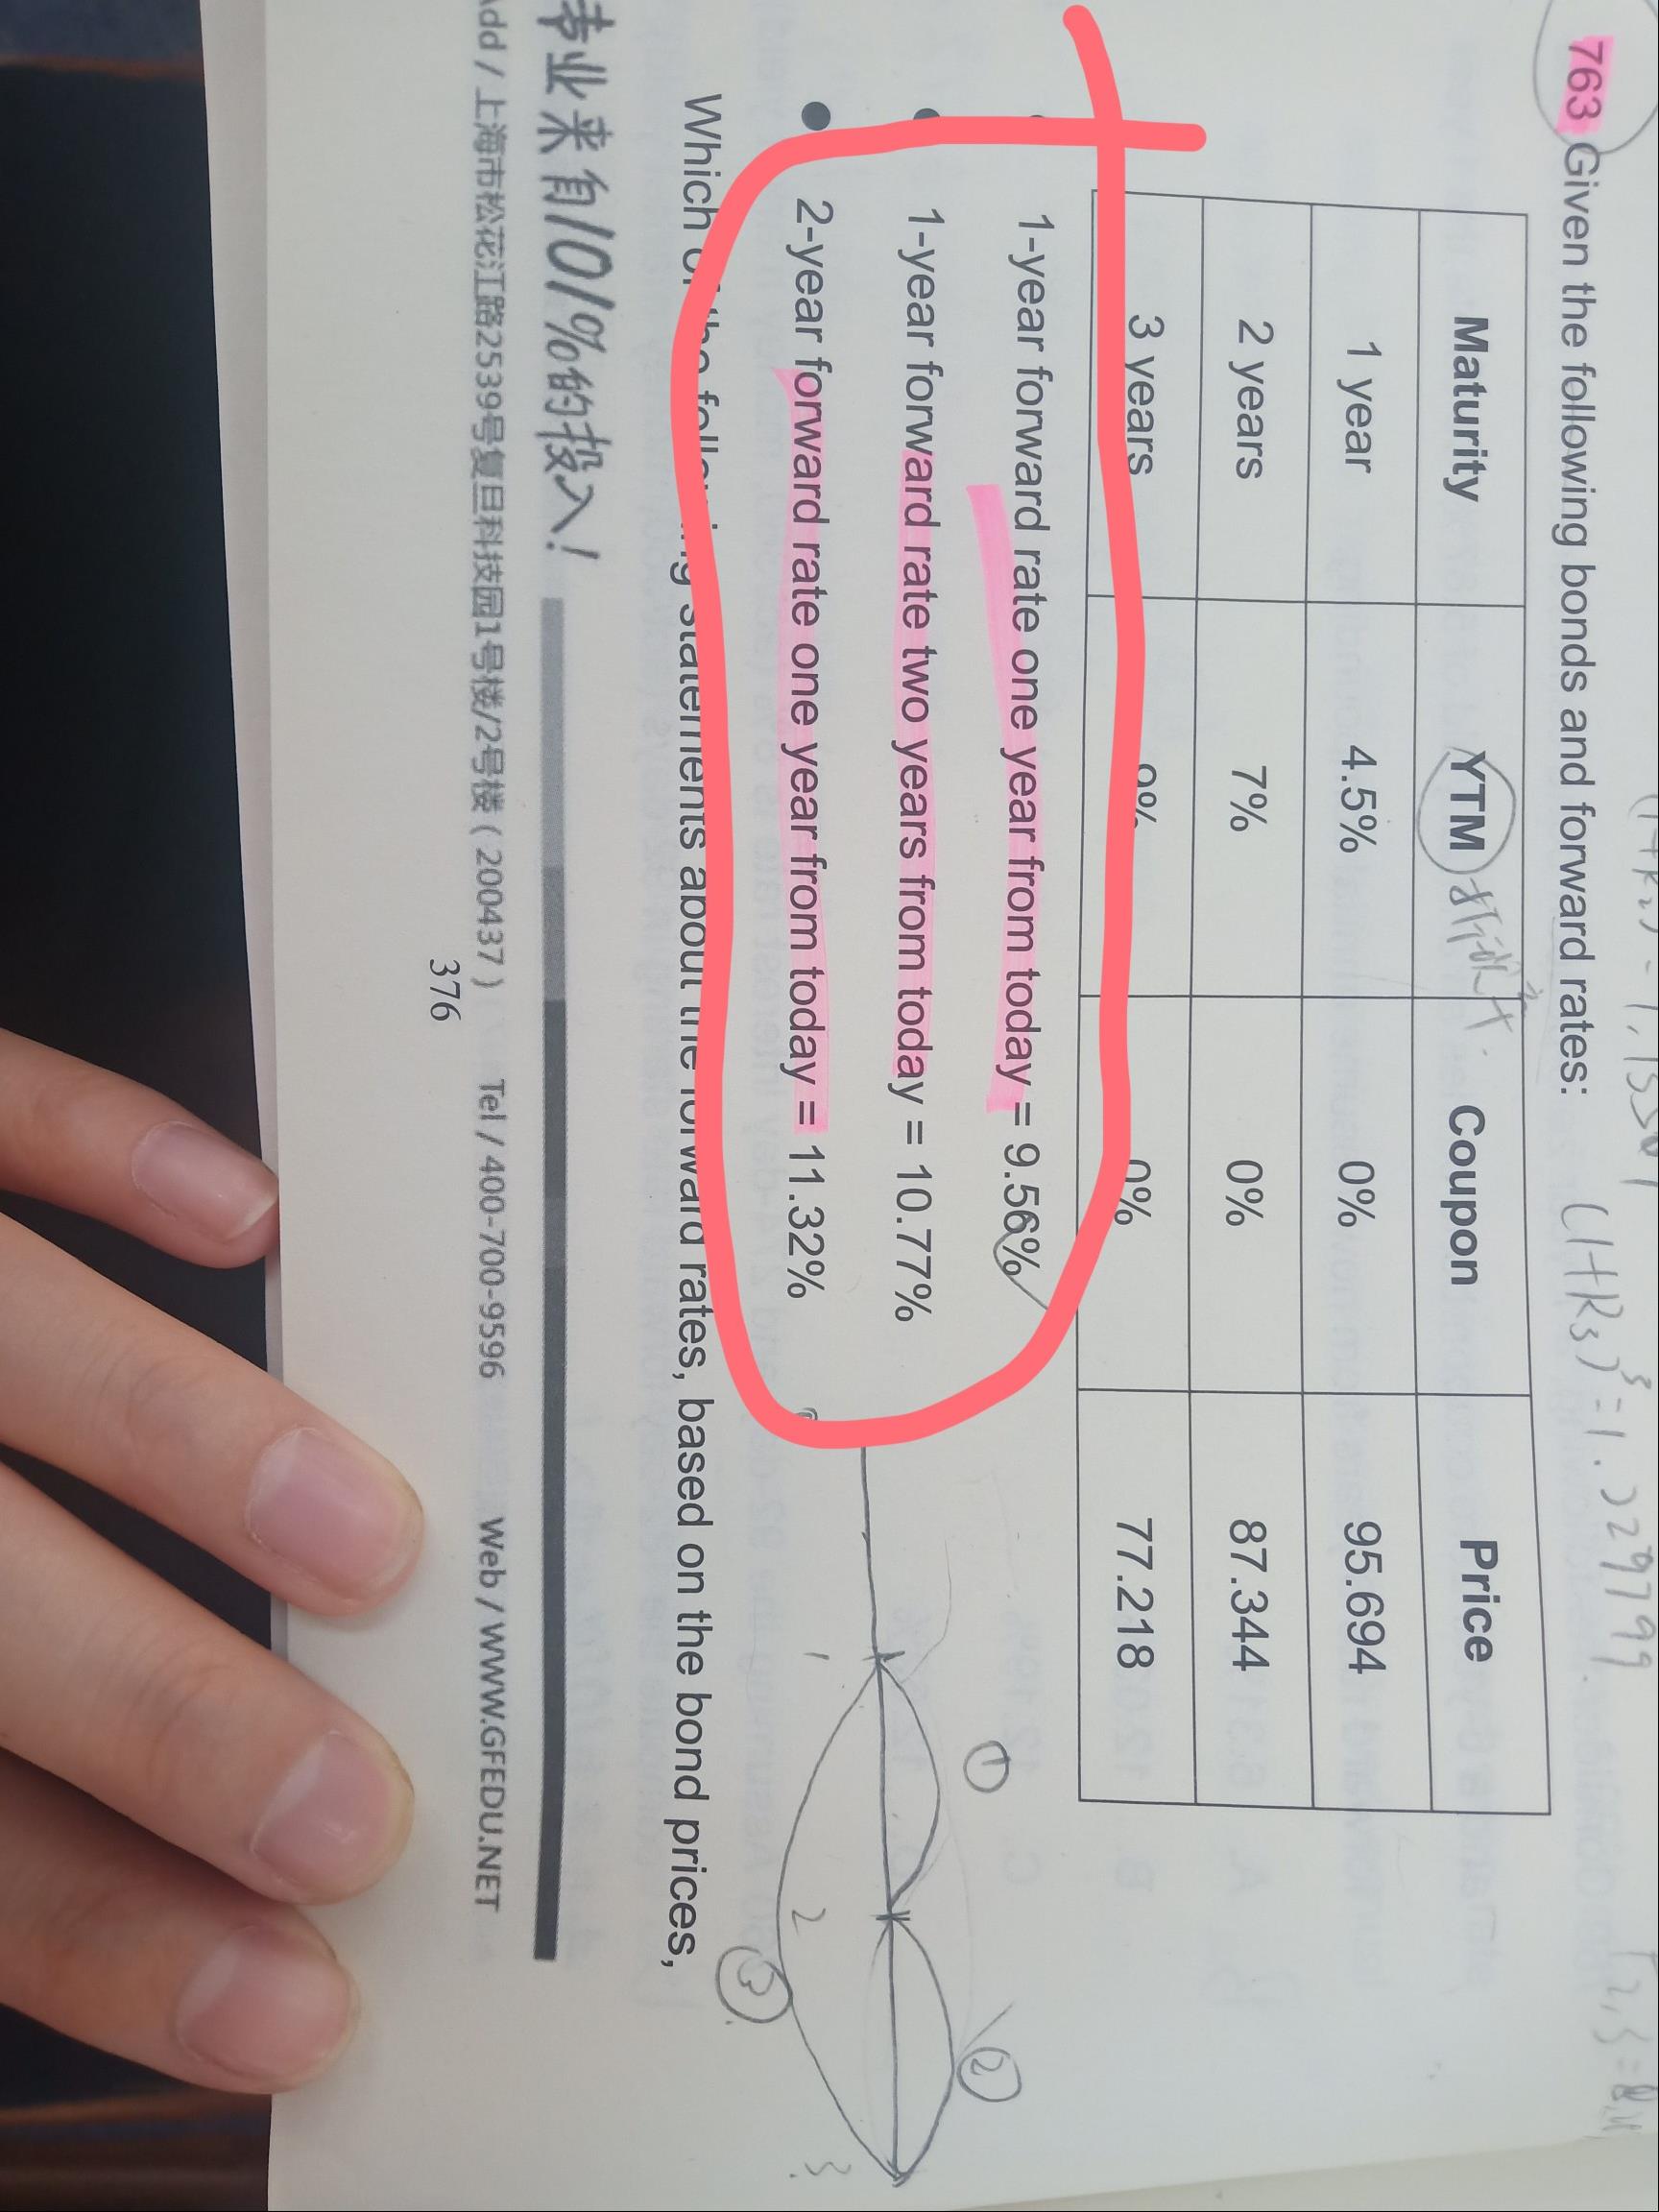 763 Given the following bonds and forward rates:
Maturity YTM Coupon Price
1 year 4.5% 0% 95.694
2 years 7% 0% 87.344
3 years 9% 0% 77.218
1-year forward rate one year from today = 9.56%
1-year forward rate two years from today = 10.77%
2-year forward rate one year from today = 11.32%
① ②
1 2 3
③
Which of the following statements about the forward rates, based on the bond prices,
专业来自101%的投入!
Add / 上海市松花江路2539号复旦科技园1号楼/2号楼 ( 200437 ) Tel / 400-700-9596 Web / WWW.GFEDU.NET
376